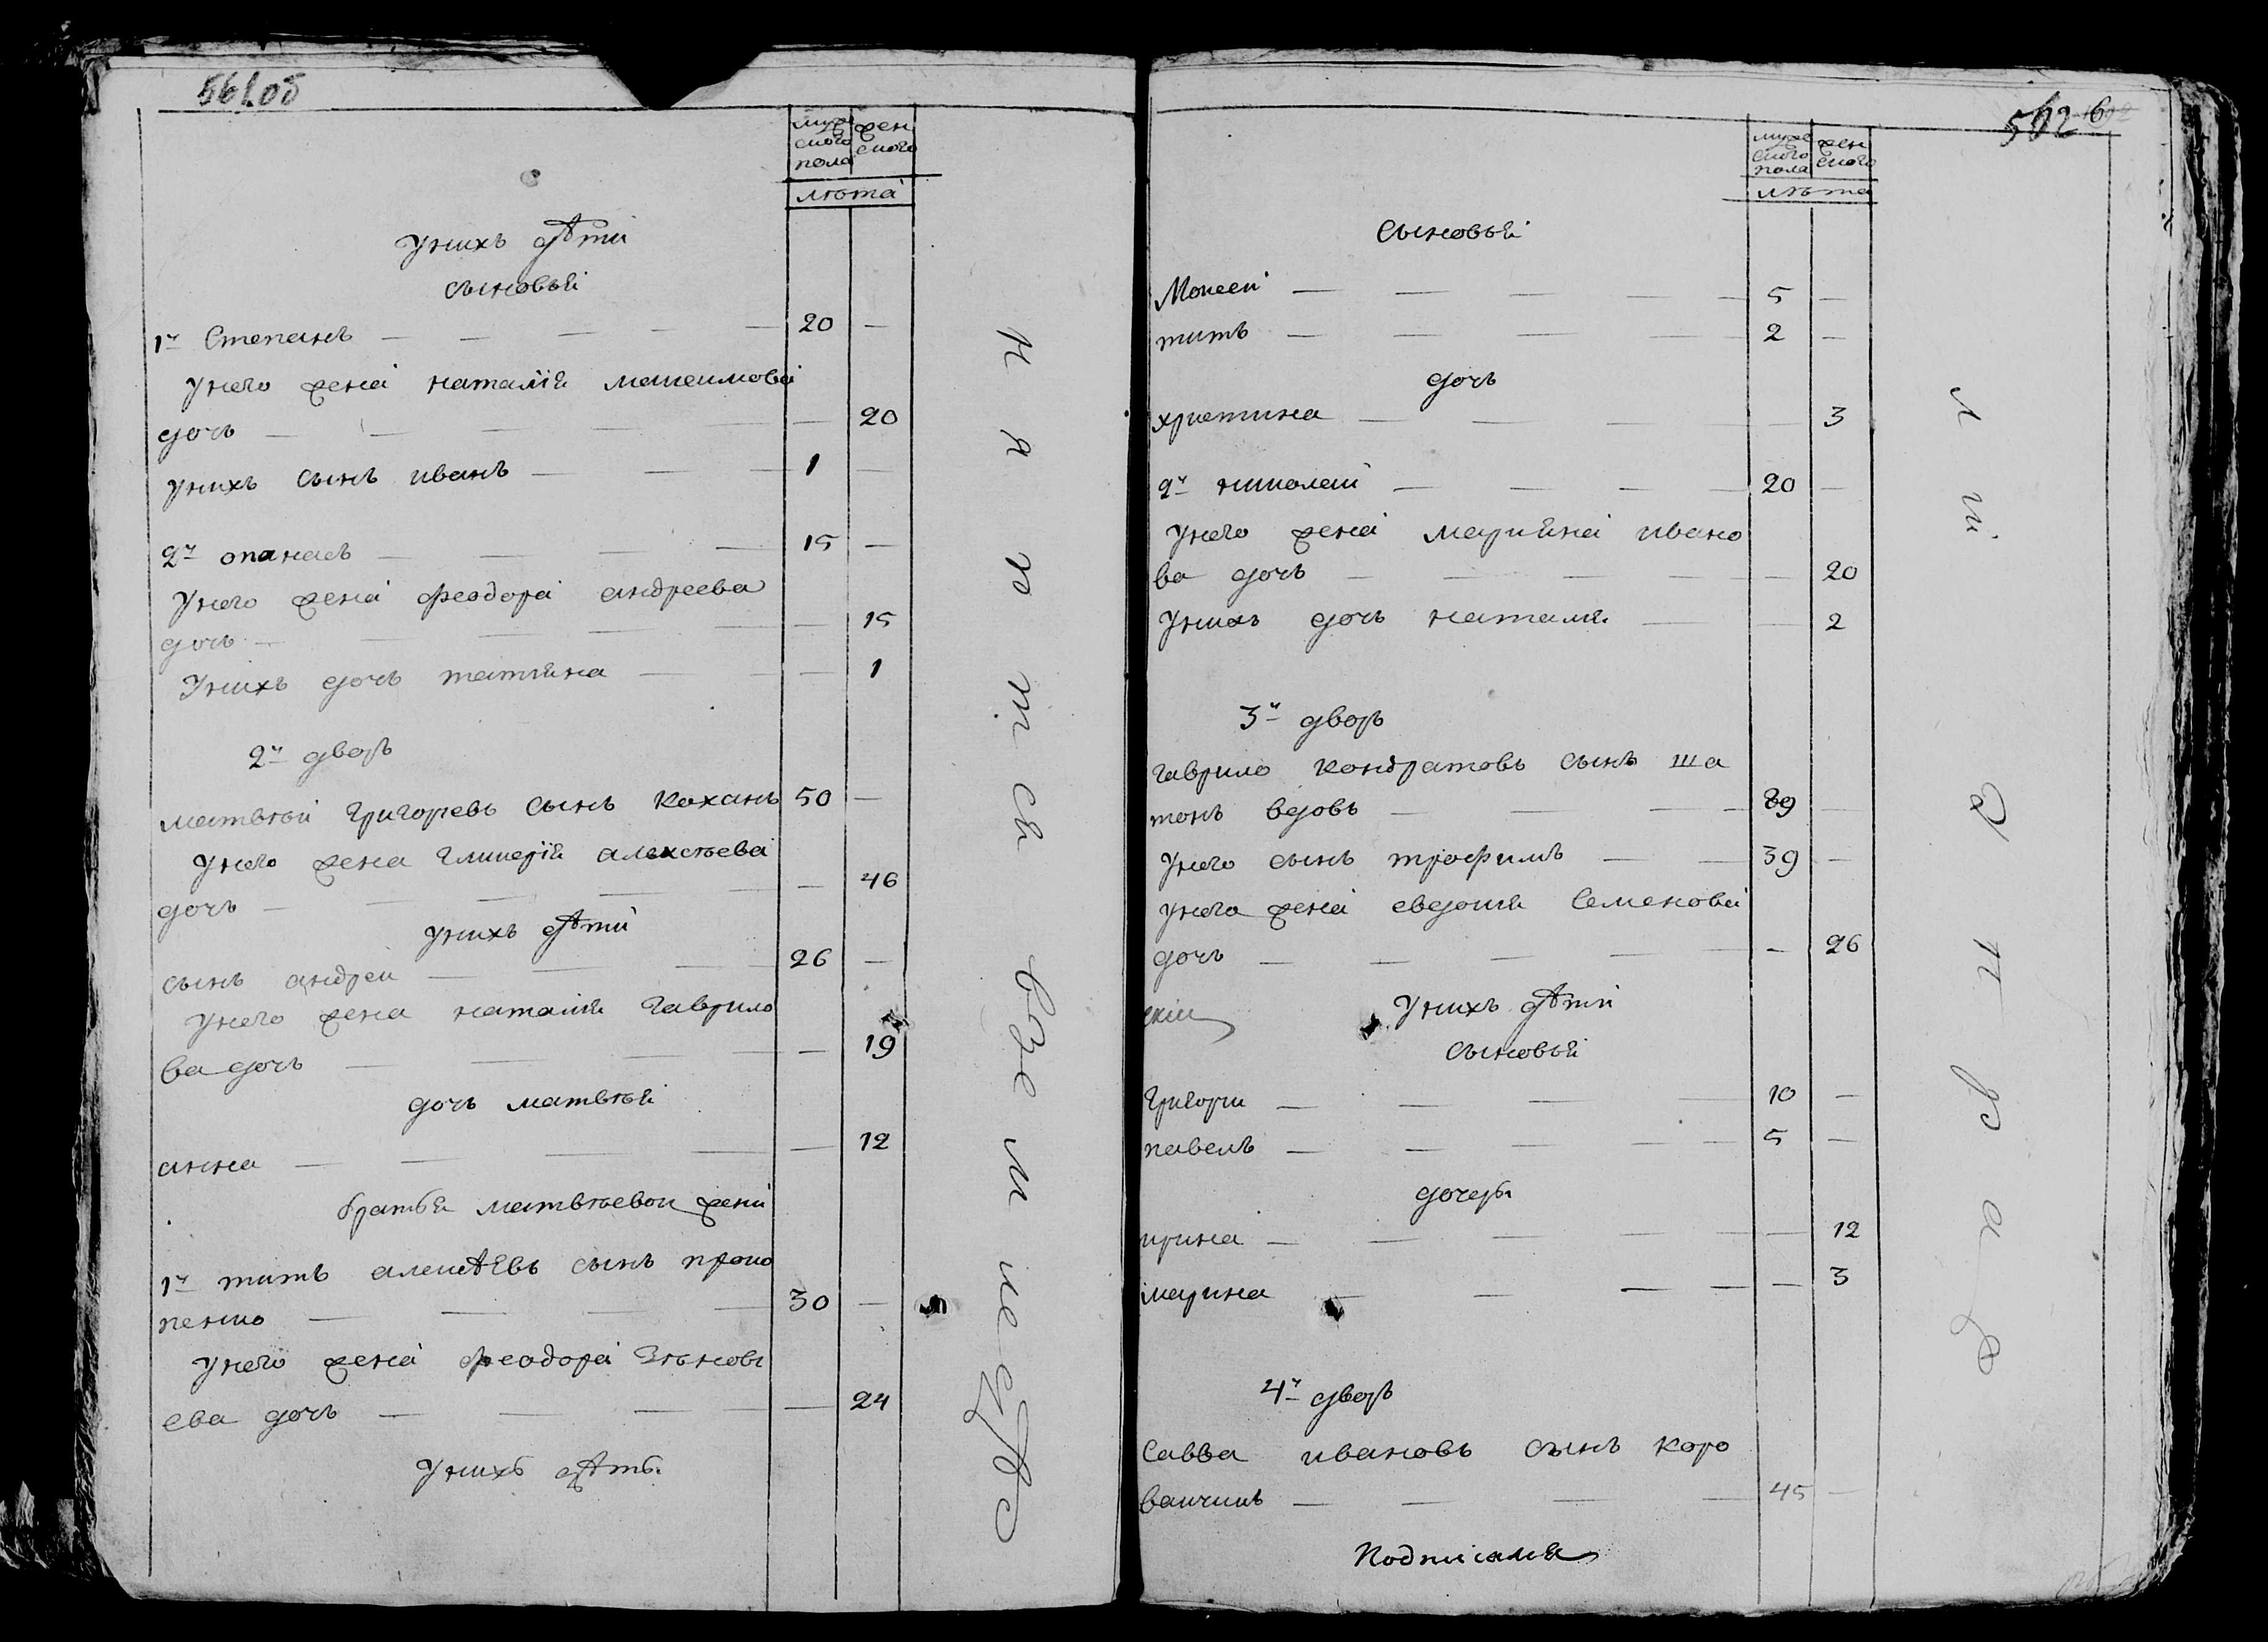 561 об
муже
ского
пола
жен
ского
лѣта
У нихъ дѣти
сыновья
1й Степанъ — 20 —
У него жена наталия максимова
дочь — 20
У нихъ сынъ иванъ — 1 —
2й опанасъ — 15 —
У него жена феодора андреева
дочь — 15
У нихъ дочь татияна — 1
2й дворъ
матвѣй григоревъ сынъ Коханъ 50 —
У него жена гликерїя алексѣева
дочь — 46
У нихъ дѣти
сынъ андреи — 26 —
У него жена наталия гаврило
ва дочь — 19
дочь матвѣя
анна — 12
братья матвѣевои жени
1й титъ алексѣевъ сынъ проко
пенко — 30 —
У него жена феодора Зѣновi
ева дочь — 24
У нихъ дѣти
5626
муже
ского
пола
жен
ского
лѣта
Сыновья
Моисеи — 5 —
титъ — 2 —
дочь
христина — 3
2й николаи — 20 —
У него жена марияна ивано
ва дочь — 20
У нихъ дочь наталия — 2
3й дворъ
гаврило Кондратовъ сынъ ша
тонъ вдовъ — 89 —
У него сынъ трофимъ — 39 —
У него жена евдокия Семенова
дочь — 26
У нихъ дѣти
сыновья
Григори — 10 —
павелъ — 5 —
дочери
ирина — 12
марина — 3
4й дворъ
Савва ивановъ сынъ Коро
ваичикъ — 45 —
Подписался